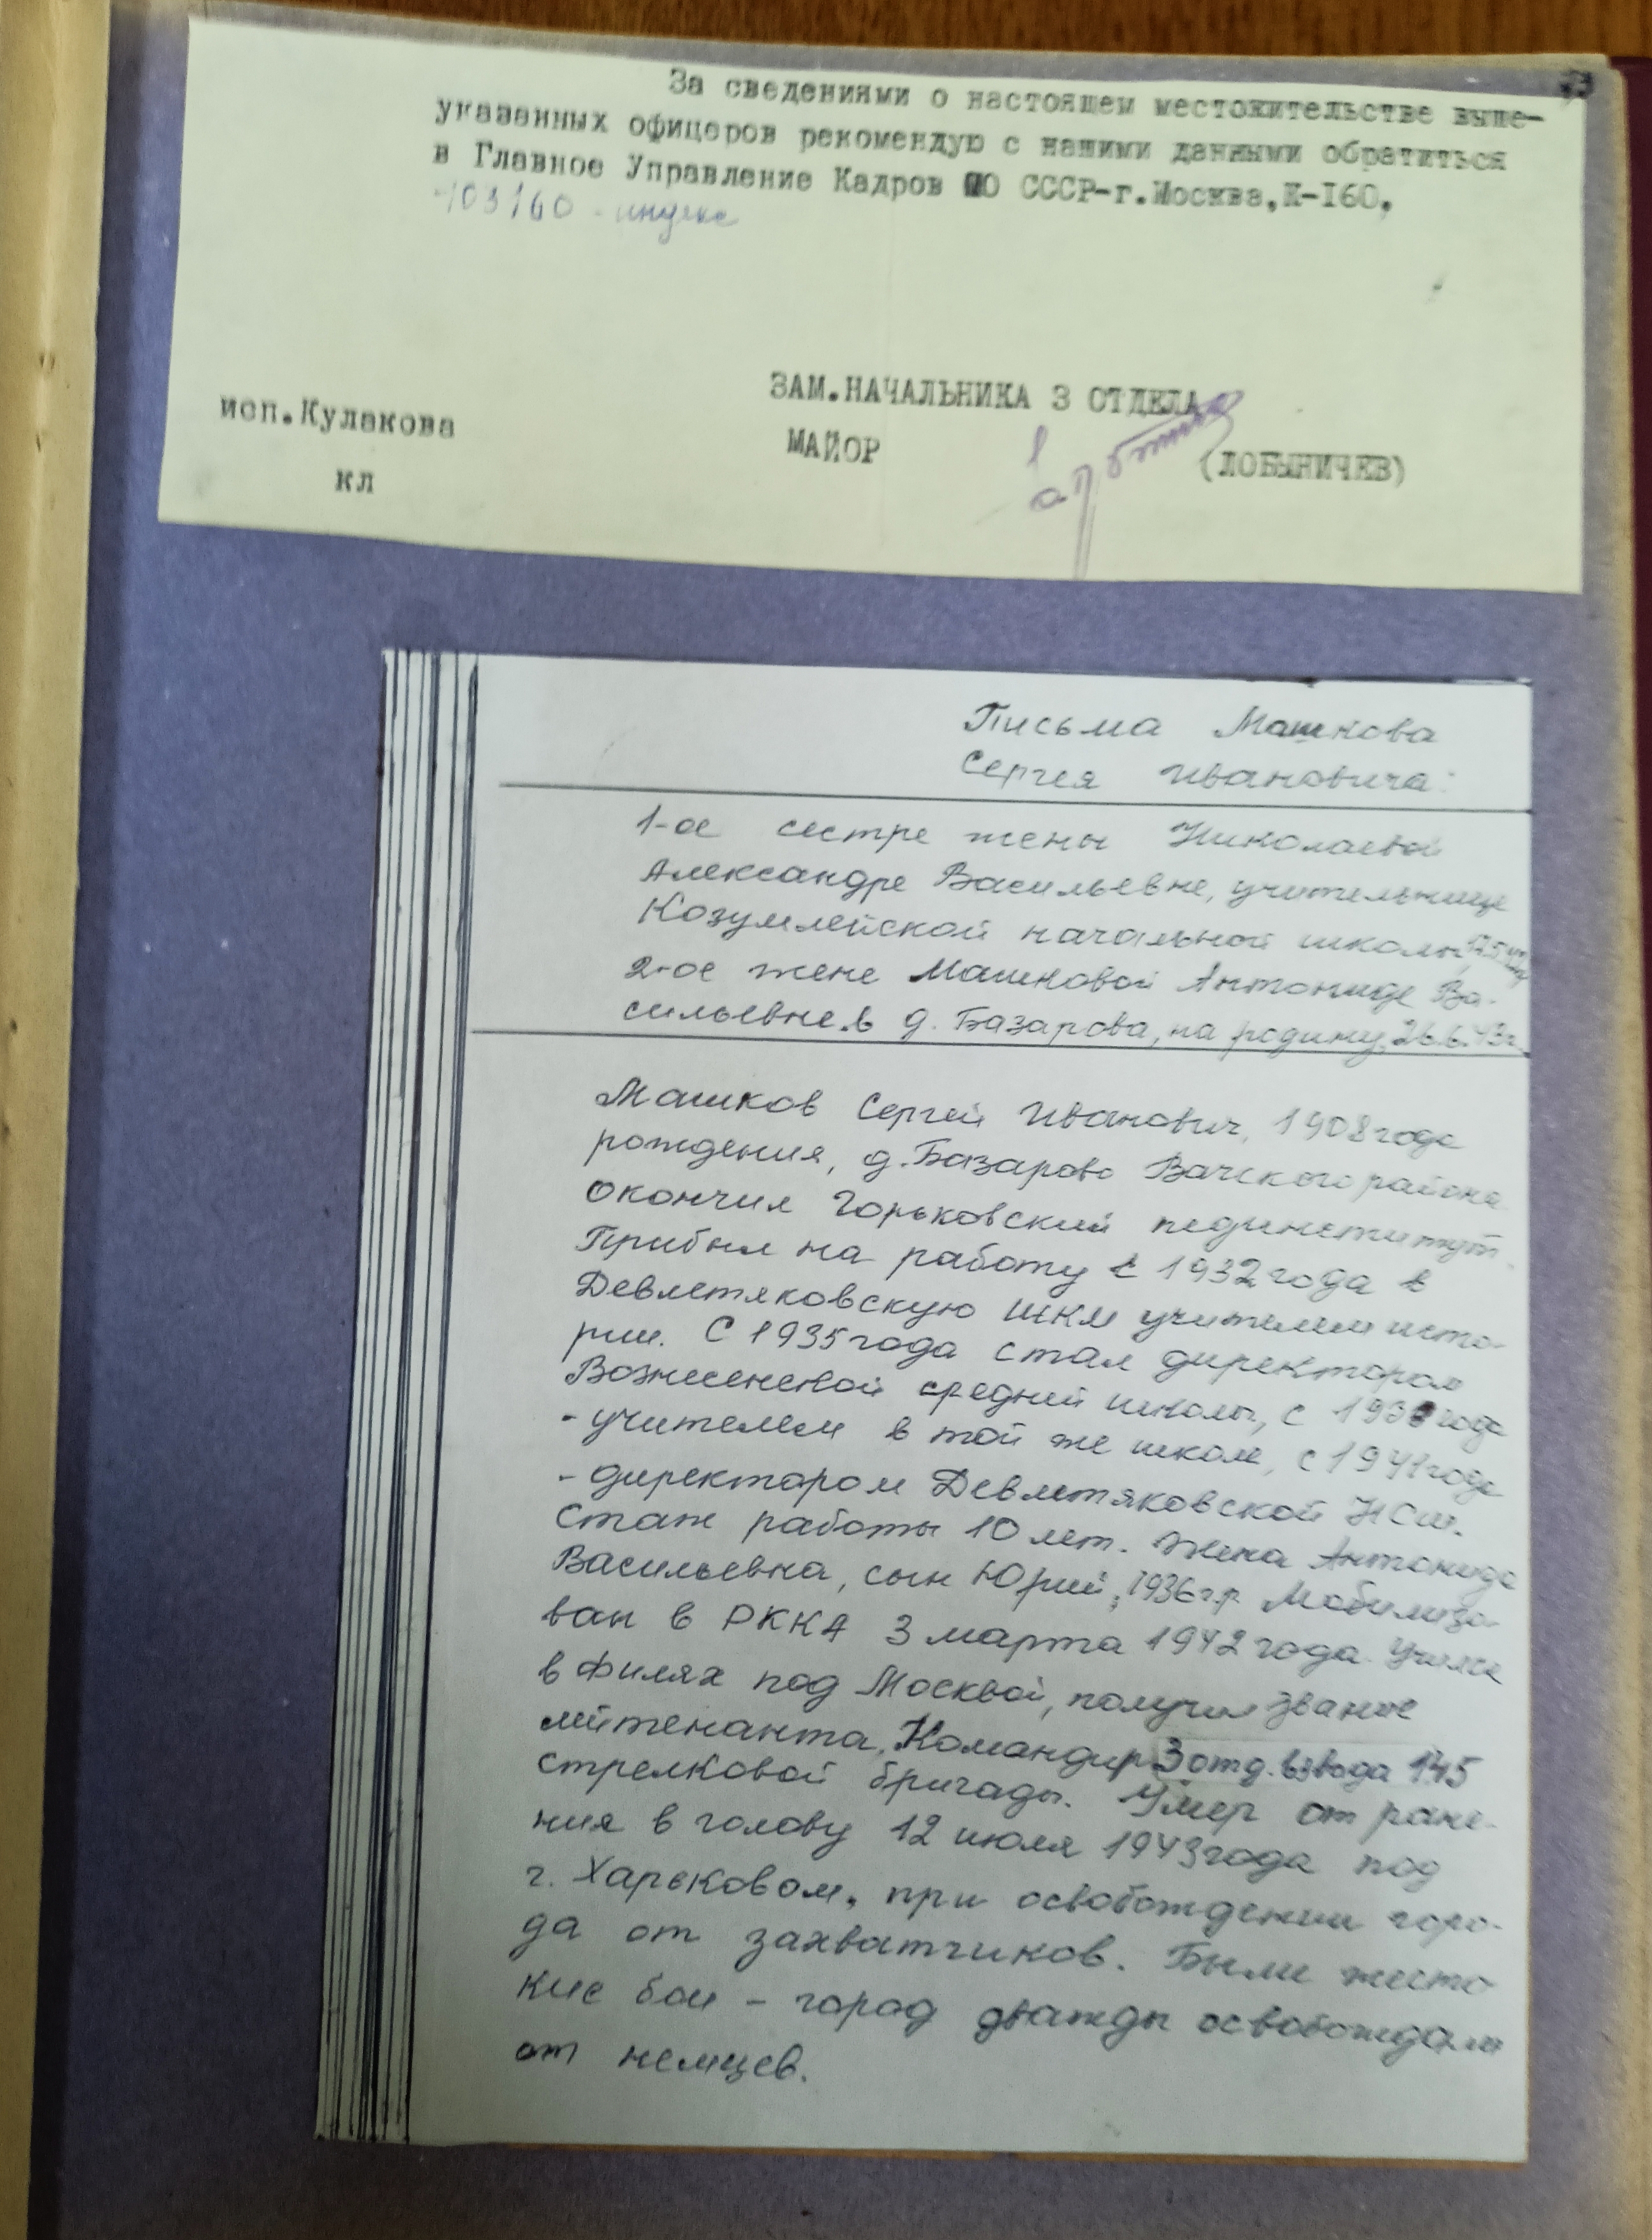 73
За сведениями о настоящем местожительстве выше-
указанных офицеров рекомендую с нашими данными обратиться
в Главное Управление Кадров МО СССР-г.Москва,К-160.
103160 - индекс
ЗАМ.НАЧАЛЬНИКА 3 ОТДЕЛА
исп.Кулакова
МАЙОР
(ЛОБЫНИЧЕВ)
кл
Письма Машкова
Сергея Ивановича:
1-ое сестре жены Николаевой
Александре Васильевне, учительнице
Козумлейской начальной школы
2-ое жене Машковой Антониде Ва-
сильевне в д. Базарова, на родину, 26.6.43г.
Машков Сергей Иванович, 1908 года
рождения, д. Базарово Вачского района
Окончил Горьковский пединститут.
Прибыл на работу с 1932 года в
Девлетяковскую ШКМ учителем исто-
рии. С 1935 года стал директором
Вознесенской средней школы, с года
- учителем в той же школе, с 1941 года
- директором Девлетяковской НСШ.
Стаж работы 10 лет. Жена Антонида
Васильевна, сын Юрий, 1936 г.р. Мобилизо-
ван в РККА 3 марта 1942 года. Учился
в Филях под Москвой, получил звание
лейтенанта. Командир 3 отд. взвода 145
стрелковой бригады. Умер от ране-
ния в голову 12 июля 1943 года под
г. Харьковом, при освобождении горо-
да от захватчиков. Были жесто
кие бои - город дважды освобождали
от немцев.